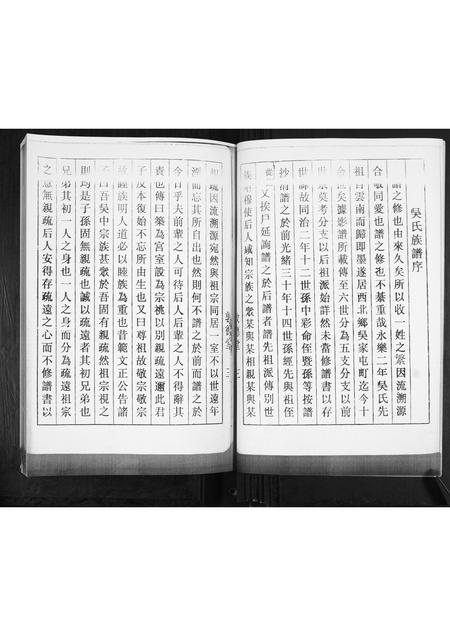 吳氏族譜序
譜之修也由來久矣所以收一姓之繁因流溯源
合敬同愛也譜之修也不綦重哉永樂二年吳氏先
祖自雲南而歸即墨遂居西北鄉吳家屯町迄今十
餘世矣據影譜所載傳至六世分為五支分支以前
世系莫考分支以后祖派始詳然未當修譜書以存
世諱故同治二年十二世孫中彩命侄暨孫等按譜
抄清譜之於前光緒三十年十四世孫經先與祖侄
從 又挨戶延詢譜之於后譜者譜先祖派傳別世
族昭穆使后人咸知宗族之衆某與某相親某與某
相疏因流溯源宛然與祖宗同居一室不以世遠年
湮而忘其所自出也然則何不譜之於前而譜之於
今日乎夫前輩之人可待后人后輩之人不得辭其
責也傳曰築為宮室設為宗祧以別親疏遠邇此君
子反本復始不忘所由生也又曰尊祖故敬宗敬宗
故睦族明人道必以睦族為重也昔範文正公告諸
子曰吾吳中宗族甚衆於吾固有親疏然祖宗視之
則均是子孫固無親疏也誠以疏遠者其初兄弟也
兄弟其初一人之身也一人之身而分為疏遠祖宗
之意無親疏后人安得存疏遠之心而不修譜書以
三
三